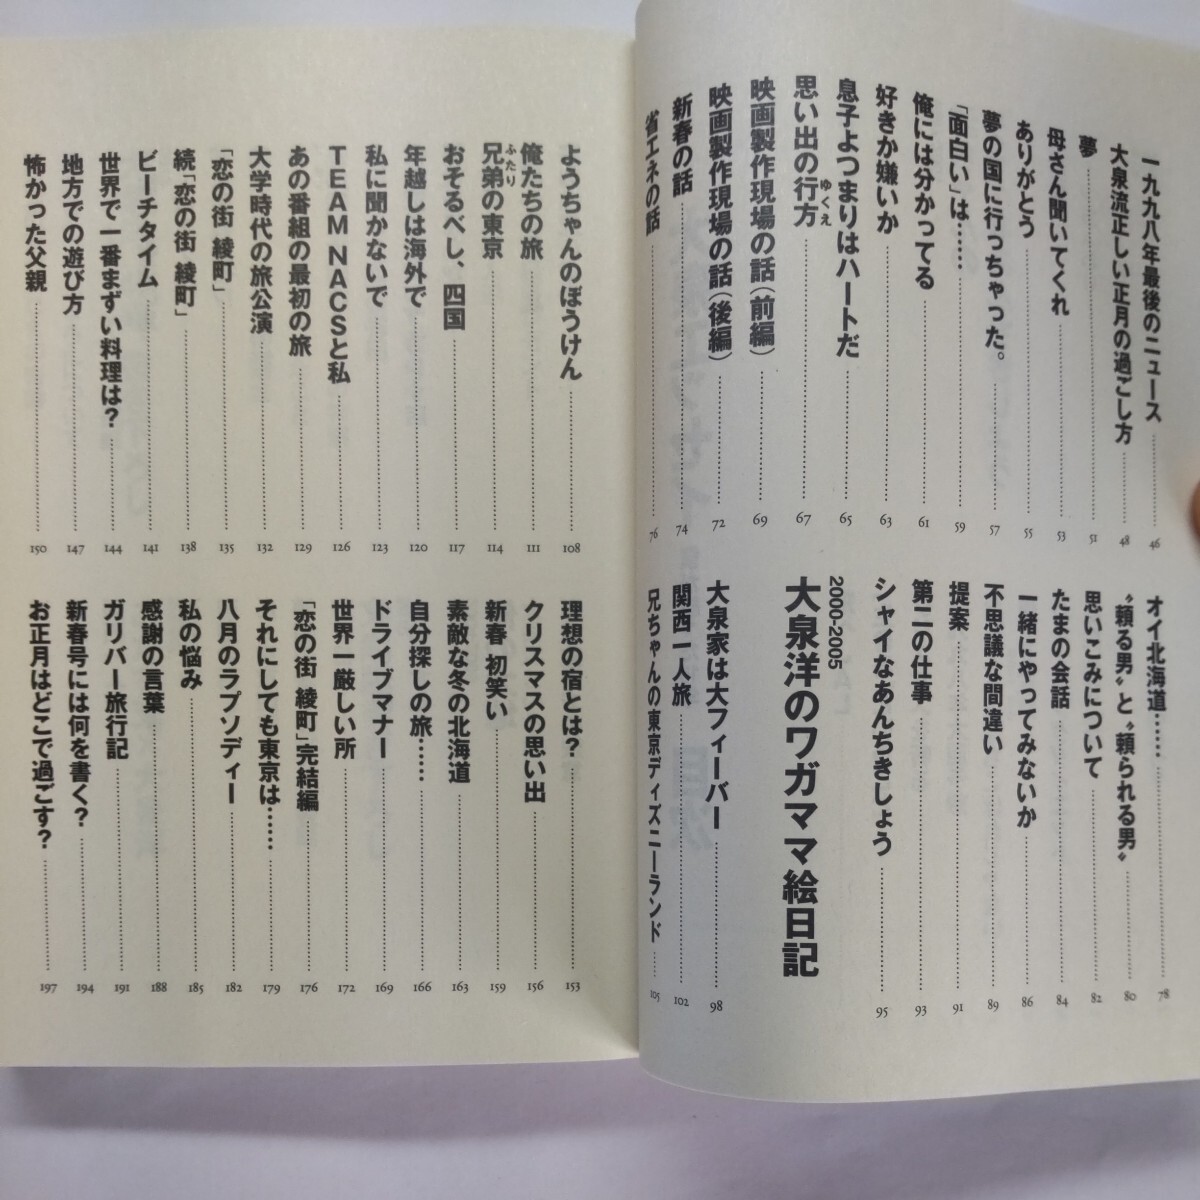 一九九八年最後のニュース 46
大泉流正しい正月の過ごし方 48
夢 51
母さん聞いてくれ 53
ありがとう 55
夢の国に行っちゃった。 57
「面白い」は…… 59
俺には分かってる 61
好きか嫌いか 63
息子よつまりはハートだ 65
思い出の行方 ゆくえ 67
映画製作現場の話(前編) 69
映画製作現場の話(後編) 72
新春の話 74
省エネの話 76
オイ北海道…… 78
〝頼る男〟と〝頼られる男〟 80
思いこみについて 82
たまの会話 84
一緒にやってみないか 86
不思議な間違い 89
提案 91
第二の仕事 93
シャイなあんちきしょう 95
2000-2005
大泉洋のワガママ絵日記
大泉家は大フィーバー 98
関西一人旅 102
兄ちゃんの東京ディズニーランド 105
ようちゃんのぼうけん 108
俺たちの旅 111
兄弟の東京 ふたり 114
おそるべし、四国 117
年越しは海外で 120
私に聞かないで 123
TEAM NACSと私 126
あの番組の最初の旅 129
大学時代の旅公演 132
「恋の街 綾町」 135
続「恋の街 綾町」 138
ビーチタイム 141
世界で一番まずい料理は? 144
地方での遊び方 147
怖かった父親 150
理想の宿とは? 153
クリスマスの思い出 156
新春 初笑い 159
素敵な冬の北海道 163
自分探しの旅…… 166
ドライブマナー 169
世界一厳しい所 172
「恋の街 綾町」完結編 176
それにしても東京は…… 179
八月のラプソディー 182
私の悩み 185
感謝の言葉 188
ガリバー旅行記 191
新春号には何を書く? 194
お正月はどこで過ごす? 197